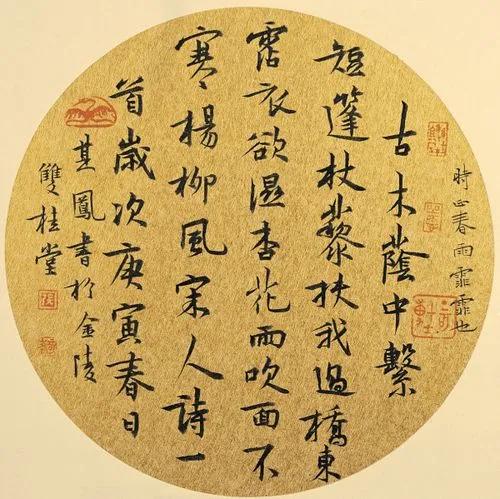 時正春雨霏霏也
古木蔭中繫
短篷杖藜扶我過橋東
霑衣欲濕杏花雨吹面不
寒楊柳風宋人詩一
首歲次庚寅春日
其鳳書於金陵
雙桂堂